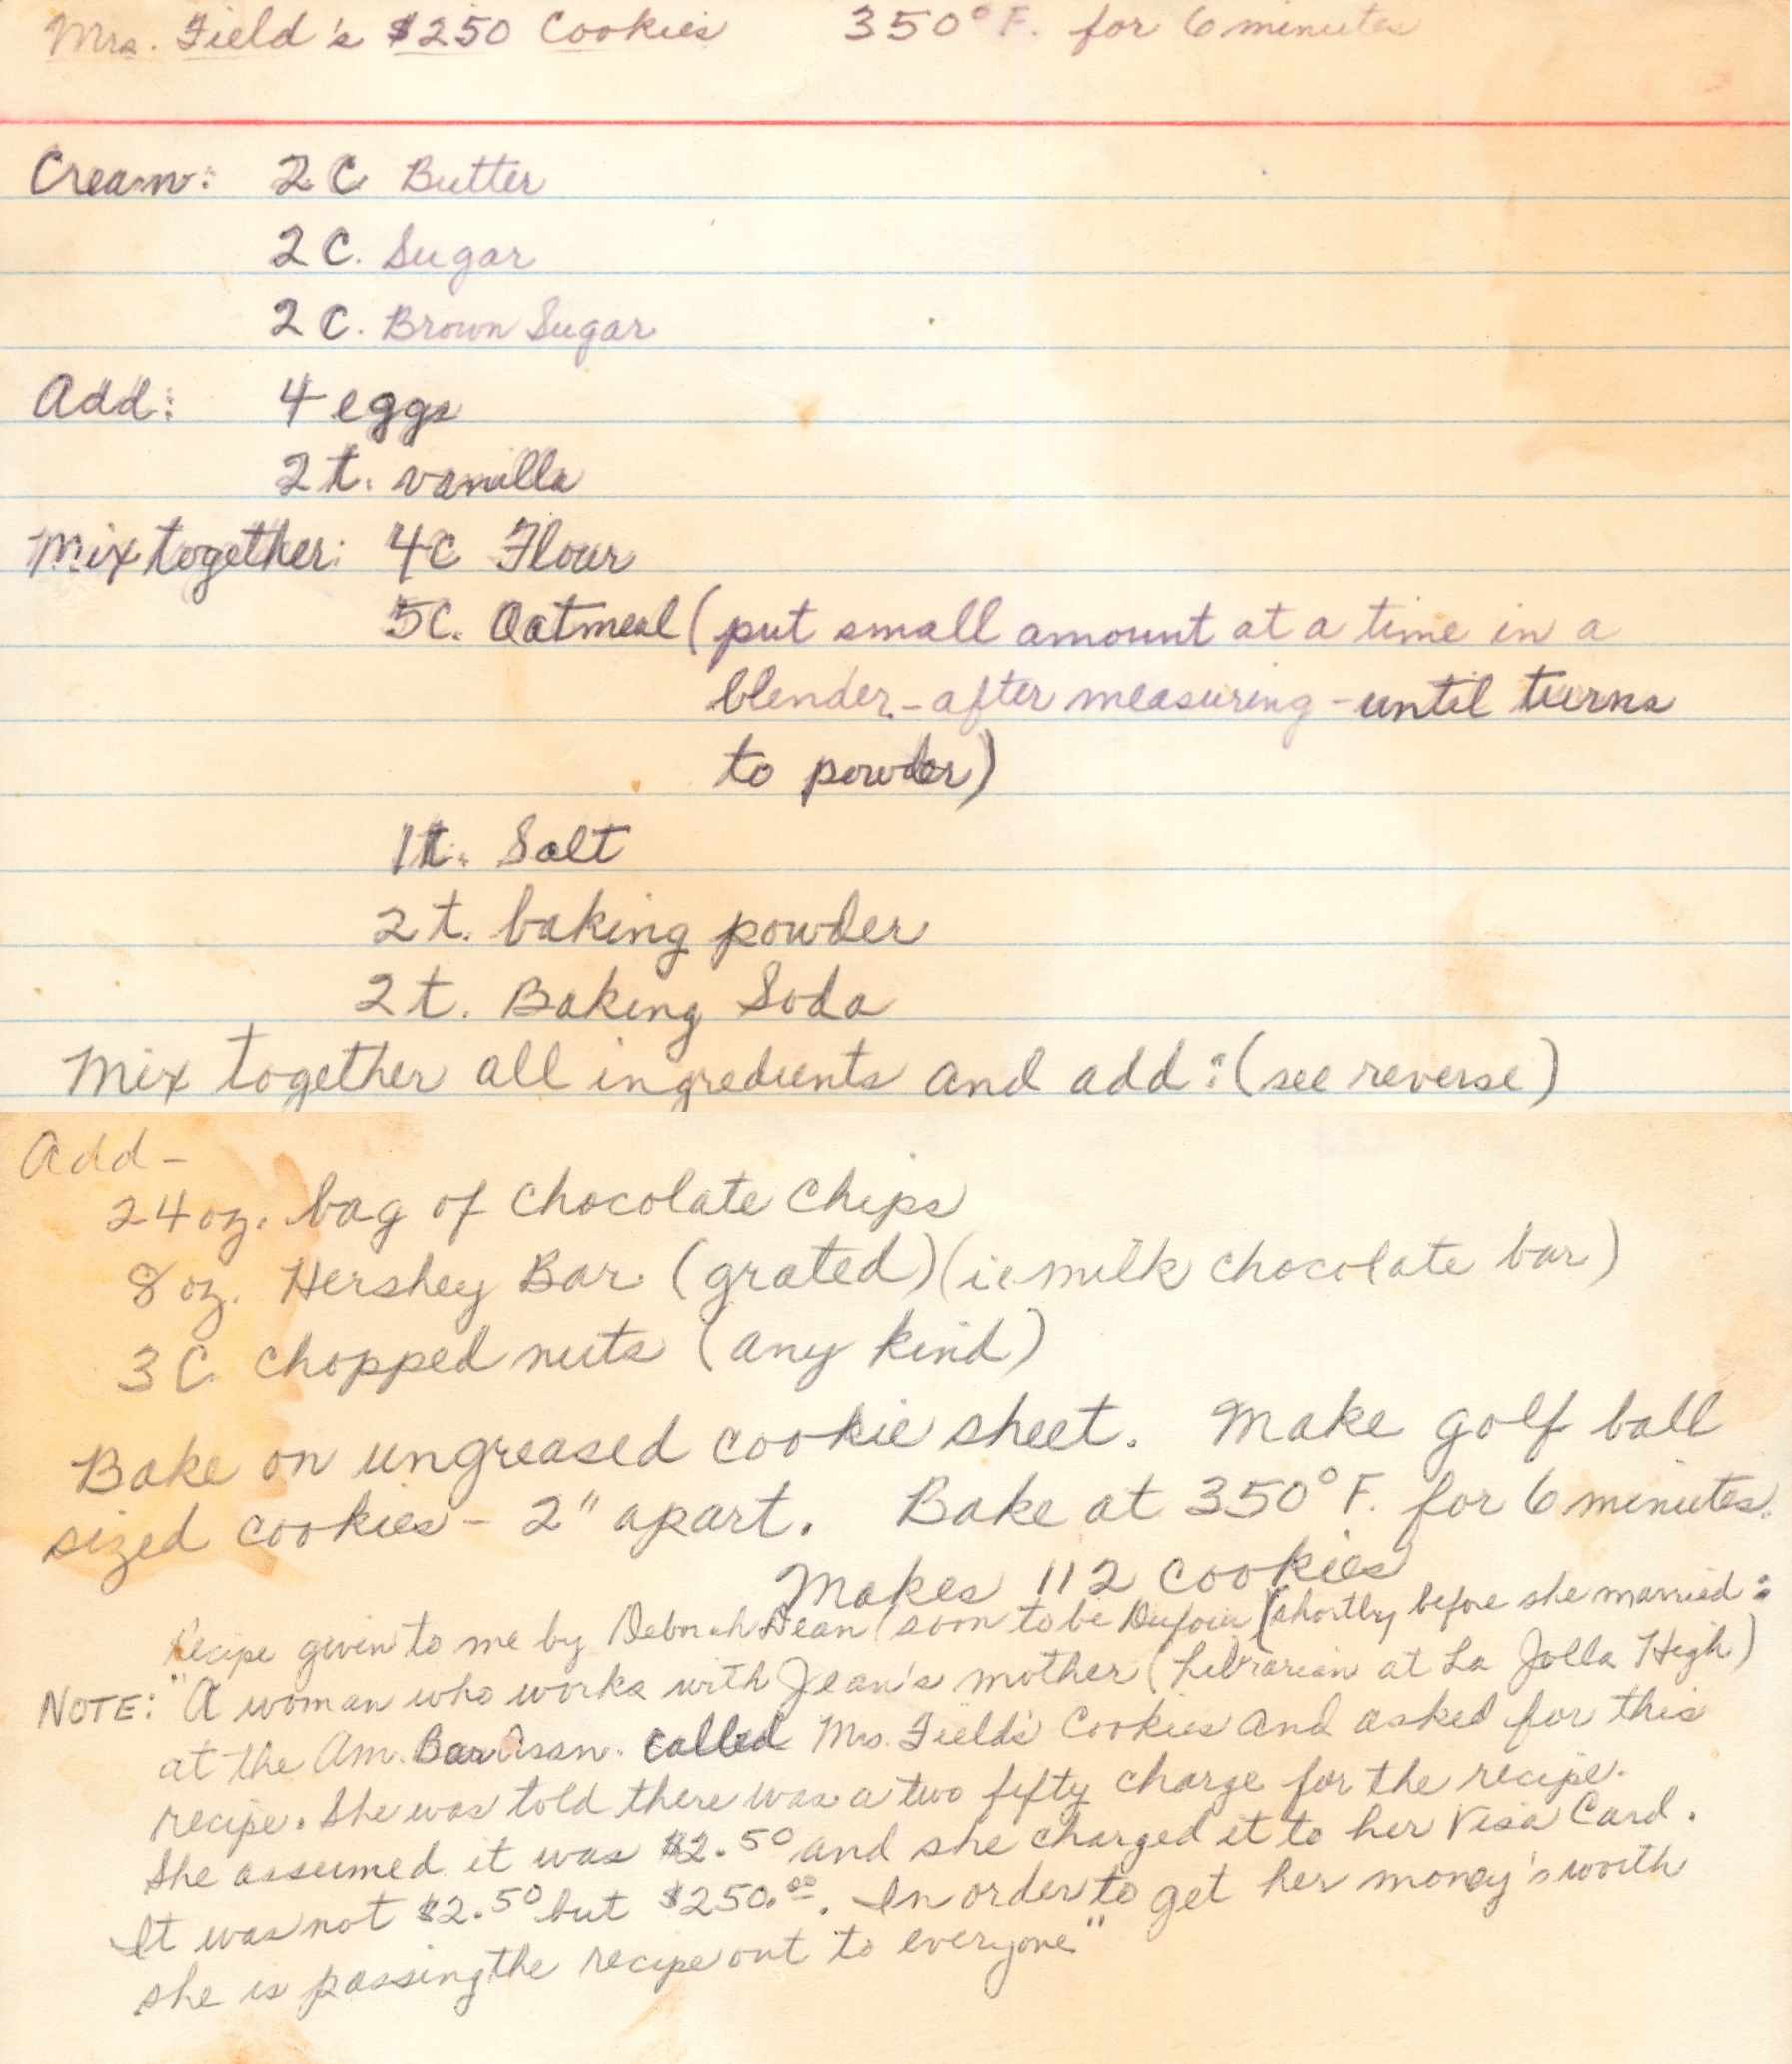 Mrs. Field's $250 Cookies 350° F. for 6 minutes
Cream: 2 C Butter
2 C. Sugar
2 C. Brown Sugar
Add: 4 eggs
2 t. vanilla
Mix together: 4C Flour
5C. Oatmeal (put small amount at a time in a
blender - after measuring - until turns
to powder)
1t. Salt
2 t. baking powder
2 t. Baking Soda
Mix together all ingredients and add: (see reverse)
Add -
24 oz. bag of chocolate chips
8 oz. Hershey Bar (grated) (ie milk chocolate bar)
3 C. chopped nuts (any kind)
Bake on ungreased cookie sheet. Make golf ball
sized cookies - 2" apart. Bake at 350° F. for 6 minutes.
Makes 112 cookies
Recipe given to me by Deborah Dean (soon to be Dufour (shortly before she married:
NOTE: "A woman who works with Jean's mother (Librarian at La Jolla High)
at the Am. Bar Assn. called Mrs. Field's Cookies and asked for this
recipe. She was told there was a two fifty charge for the recipe.
She assumed it was $2.50 and she charged it to her Visa Card.
It was not $2.50 but $250.00. In order to get her money's worth
she is passing the recipe out to everyone"